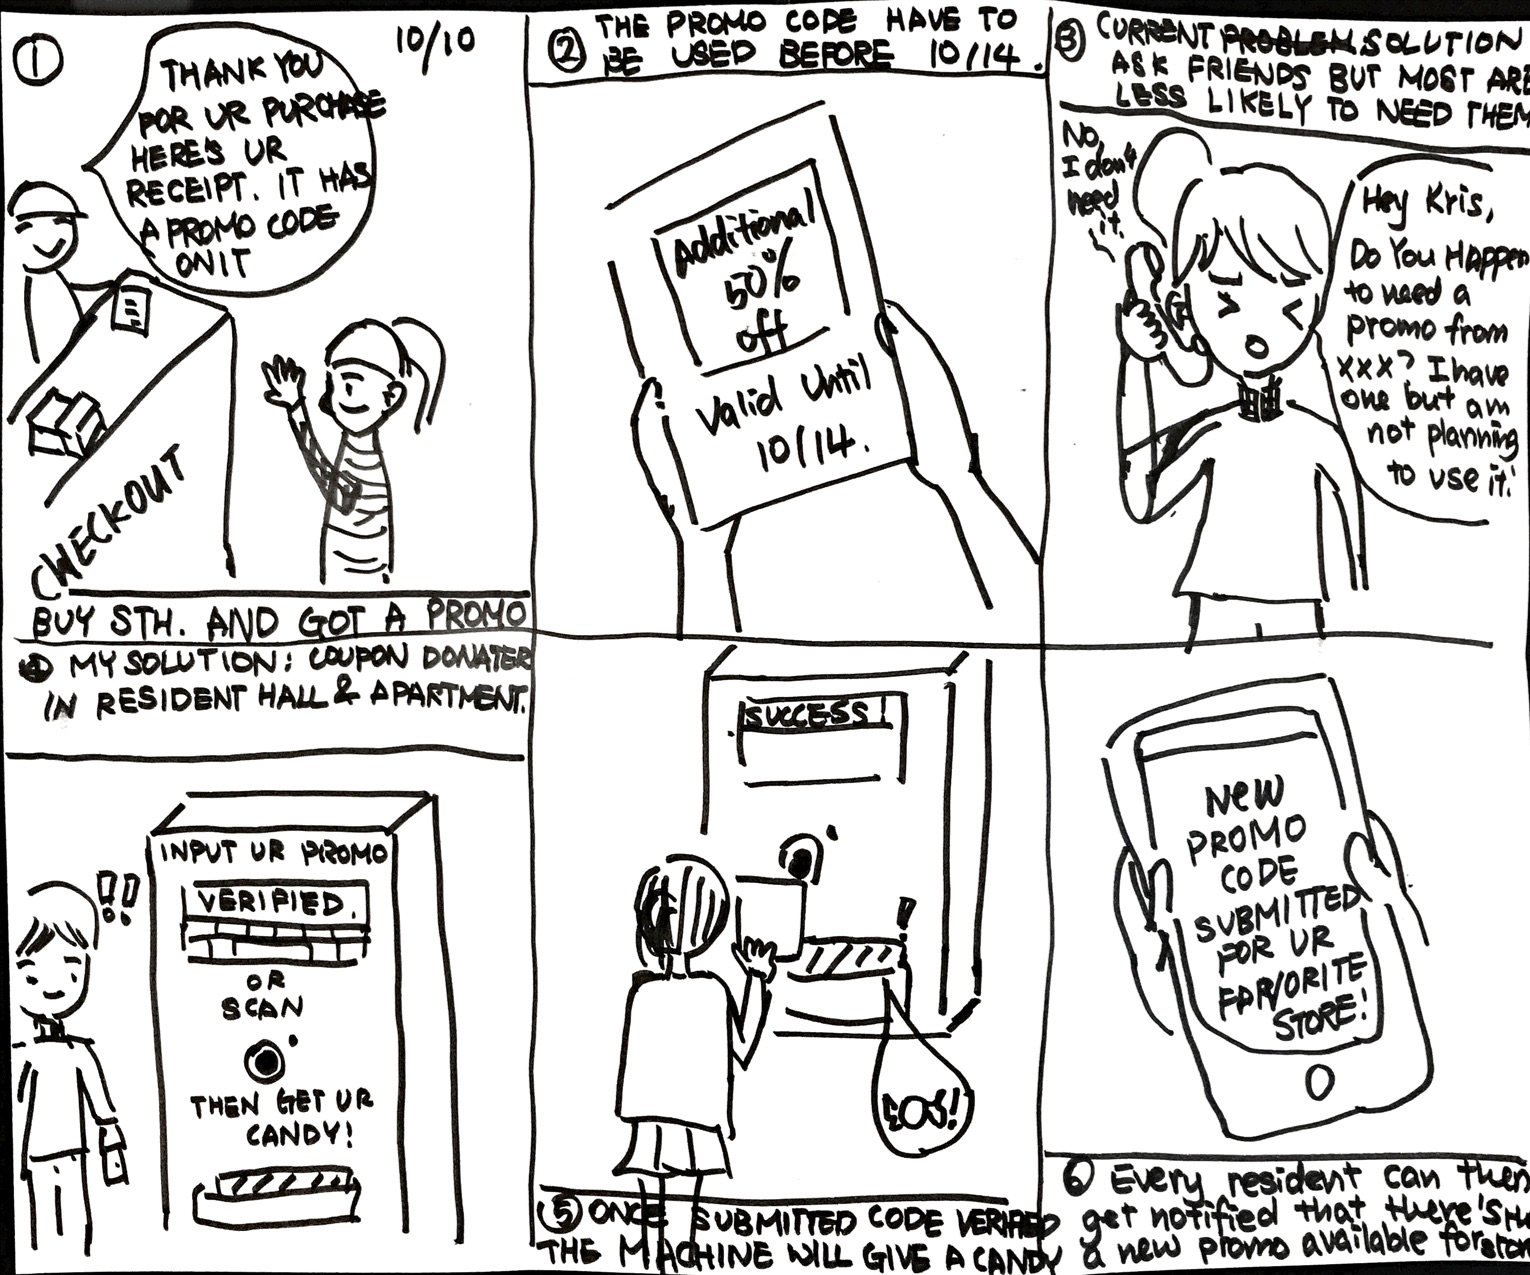 1
10/10
THANK YOU
FOR UR PURCHASE
HERE'S UR
RECEIPT. IT HAS
A PROMO CODE
ON IT
CHECKOUT
BUY STH. AND GOT A PROMO
2 THE PROMO CODE HAVE TO
BE USED BEFORE 10/14.
Additional
50%
off
Valid Until
10/14.
3 CURRENT PROBLEM SOLUTION
ASK FRIENDS BUT MOST ARE
LESS LIKELY TO NEED THEM
No,
I don't
need
it.
Hey Kris,
Do You Happen
to need a
promo from
xxx? I have
one but am
not planning
to use it.
4 MY SOLUTION: COUPON DONATER
IN RESIDENT HALL & APARTMENT.
!!
INPUT UR PROMO
VERIFIED.
OR
SCAN
THEN GET UR
CANDY!
SUCCESS!
!
5 ONCE SUBMITTED CODE VERIFIED
THE MACHINE WILL GIVE A CANDY
NEW
PROMO
CODE
SUBMITTED
FOR UR
FARVORITE
STORE!
6 Every resident can then
get notified that there's
a new promo available for